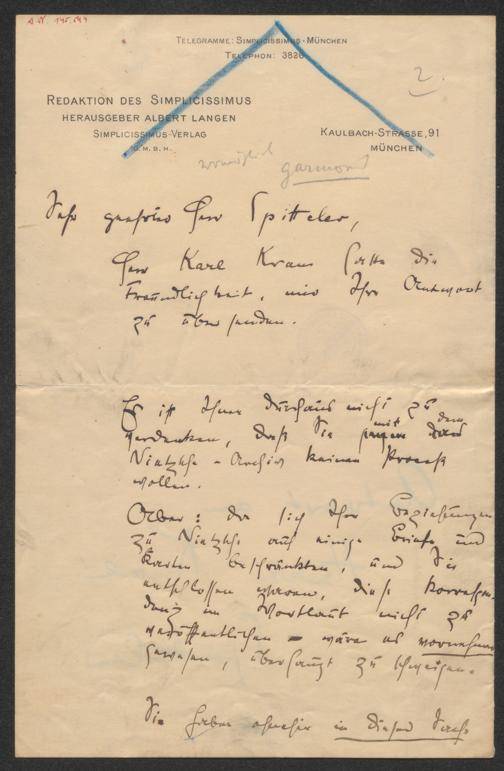 TELEGRAMME: SIMPLICISSIMUS-MÜNCHEN
TELEPHON: 3826
2.
REDAKTION DES SIMPLICISSIMUS
HERAUSGEBER ALBERT LANGEN
SIMPLICISSIMUS-VERLAG
G.M.B.H.
KAULBACH-STRASSE, 91
MÜNCHEN
garmond
Sehr geehrter Herr Spitteler,
Herr Karl Kraus hatte die
Freundlichkeit, mir Ihre Antwort
zu übersenden.
Es ist Ihnen durchaus nicht zu
verdenken, daß Sie mit dem
Nietzsche-Archiv keinen Prozeß
wollen.
Aber: da sich Ihre Beziehungen
zu Nietzsche auf einige Briefe und
Karten beschränkten, und Sie
entschlossen waren, diese Korrespon
denz im Wortlaut nicht zu
veröffentlichen – wäre es vornehmer
gewesen, überhaupt zu schweigen.
Sie haben ohnehin in dieser Sache